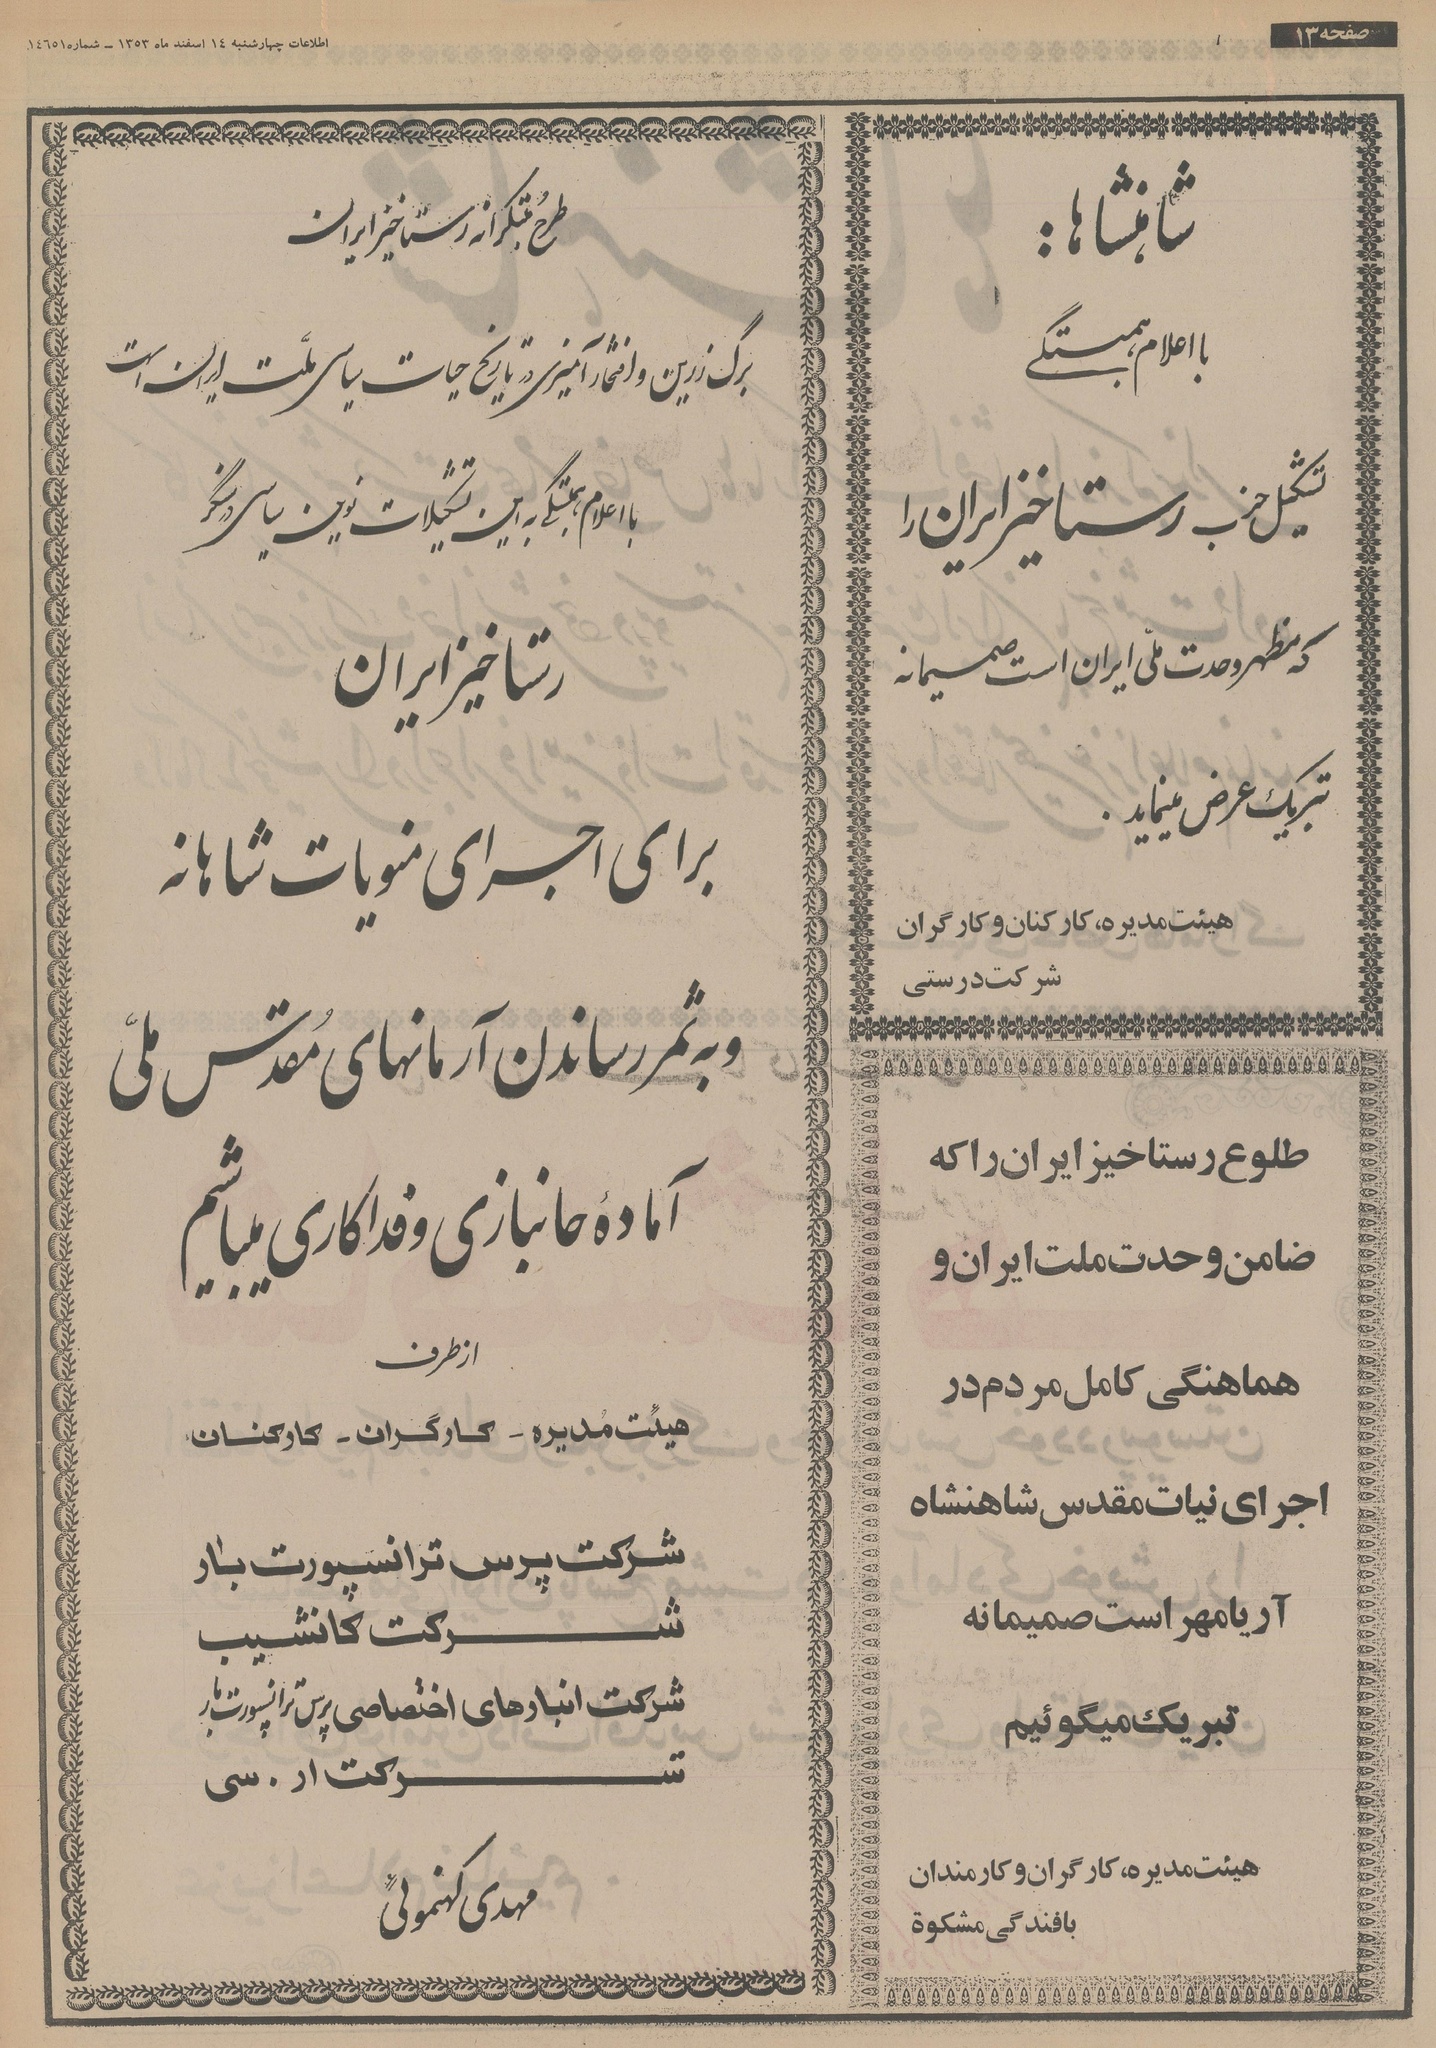 صفحه ۱۳
اطلاعات چهارشنبه ۱٤ اسفند ماه ۱۳۵۳ ــ شماره ۱٤٦٥۱
شاهنشاها :
با اعلام همبستگی
تشکیل حزب رستاخیز ایران را
که مظهر وحدت ملّی ایران است صمیمانه
تبریک عرض مینماید .
هیئت مدیره، کارکنان و کارگران
شرکت درستی
طلوع رستاخیز ایران را که
ضامن وحدت ملت ایران و
هماهنگی کامل مردم در
اجرای نیات مقدس شاهنشاه
آریامهر است صمیمانه
تبریک میگوئیم
هیئت مدیره، کارگران و کارمندان
بافندگی مشکوة
طرح مبتکرانه رستاخیز ایران
برگ زرین و افتخارآمیزی در تاریخ حیات سیاسی ملّت ایران است
با اعلام همبستگی به این تشکیلات نوین سیاسی در سنگر
رستاخیز ایران
برای اجرای منویات شاهانه
و به ثمر رساندن آرمانهای مُقدّس ملّی
آمادهٔ جانبازی و فداکاری میباشیم
از طرف
هیئت مُدیره ـ کارگران ـ کارکنان
شرکت پرس ترانسپورت بار
شرکت کانشیب
شرکت انبارهای اختصاصی پرس ترانسپورت بار
شرکت ار . سی
مهدی کهنمولی